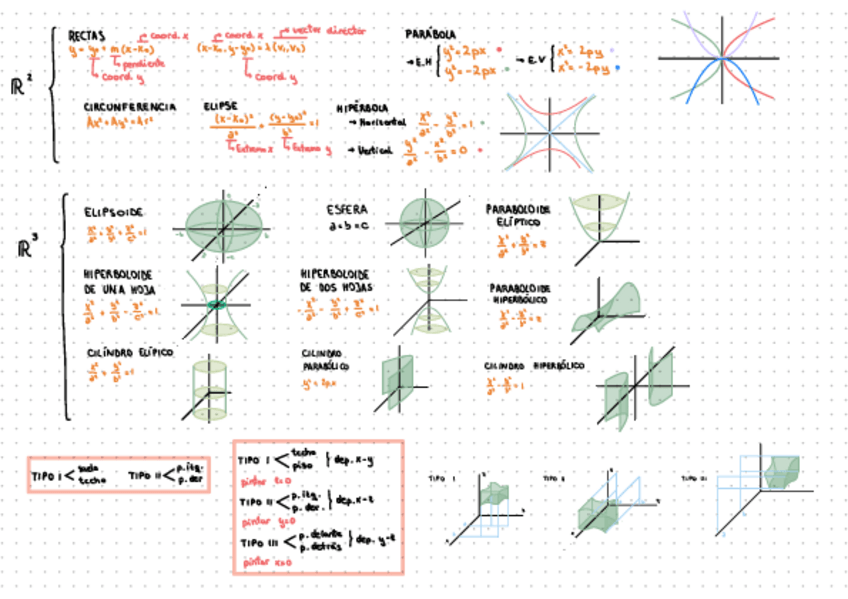 ℝ²
RECTAS
y = y₀ + m (x-x₀)
coord. x
pendiente
coord. y
(x-x₀, y-y₀) = λ(v₁, v₂)
coord. x
vector director
coord. y
PARÁBOLA
→ E.H { y² = 2px
y² = -2px
→ E.V { x² = 2py
x² = -2py
CIRCUNFERENCIA
Ax² + Ay² = Ar²
ELIPSE
(x-x₀)²/a² + (y-y₀)²/b² = 1
Extremo x
Extremo y
HIPÉRBOLA
→ Horizontal x²/a² - y²/b² = 1
→ Vertical y²/a² - x²/b² = 0
ℝ³
ELIPSOIDE
x²/a² + y²/b² + z²/c² = 1
ESFERA
a = b = c
PARABOLOIDE
ELÍPTICO
x²/a² + y²/b² = z
HIPERBOLOIDE
DE UNA HOJA
x²/a² + y²/b² - z²/c² = 1
HIPERBOLOIDE
DE DOS HOJAS
-x²/a² - y²/b² + z²/c² = 1
PARABOLOIDE
HIPERBÓLICO
x²/a² - y²/b² = z
CILÍNDRO ELÍPICO
x²/a² + y²/b² = 1
CILINDRO
PARABÓLICO
y² = 2px
CILINDRO HIPERBÓLICO
x²/a² - y²/b² = 1
TIPO I < suelo
techo
TIPO II < p. izq.
p. der
TIPO I < techo
piso } dep. x-y
pintar z=0
TIPO II < p. izq.
p. der. } dep. x-z
pintar y=0
TIPO III < p. delante
p. detrás } dep. y-z
pintar x=0
TIPO I
TIPO II
TIPO III